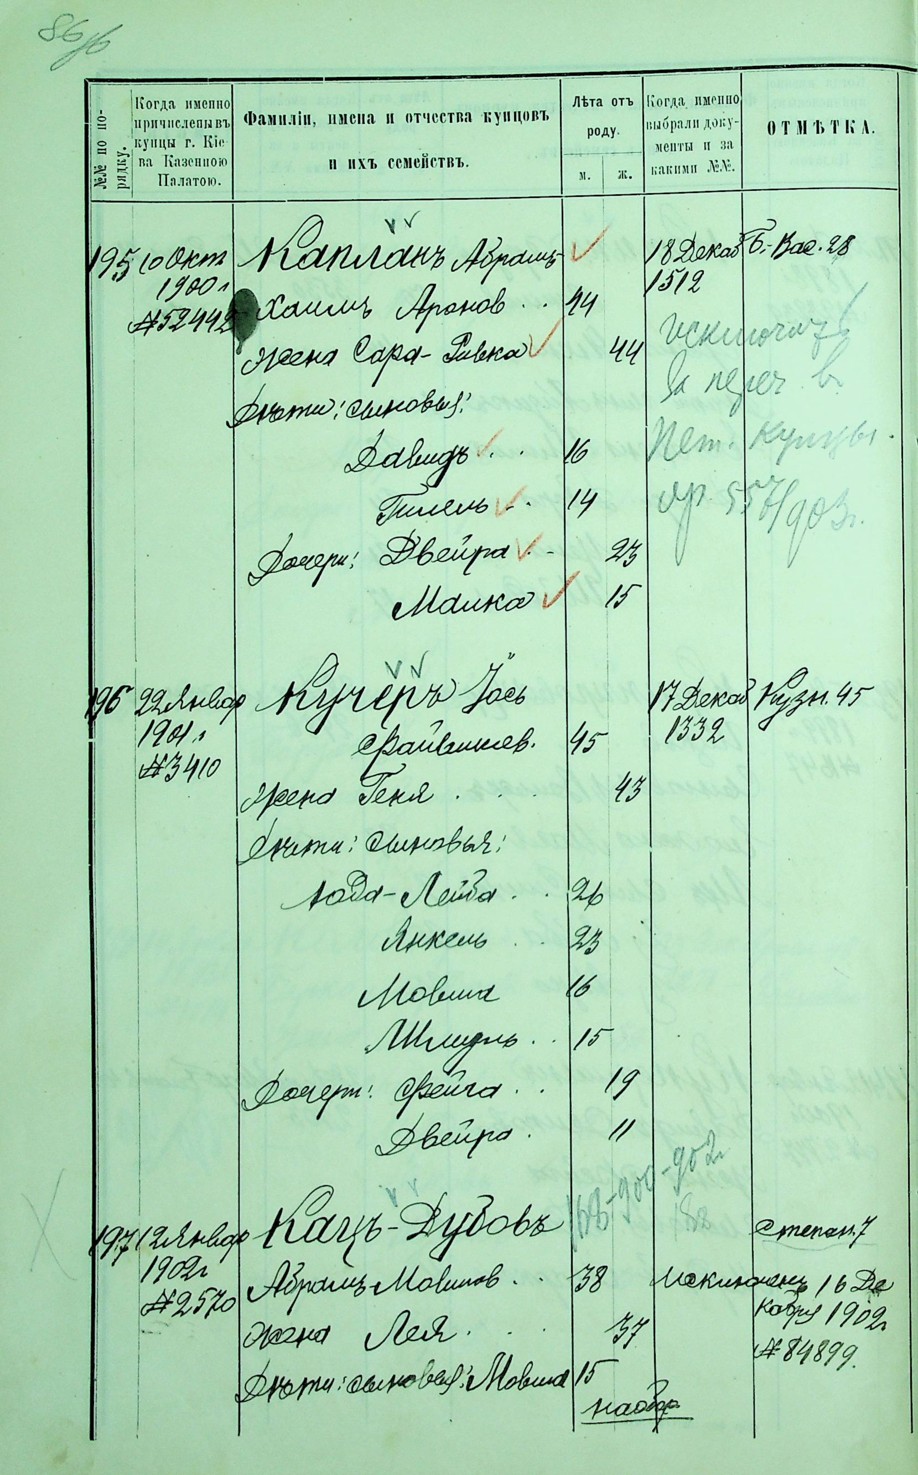 86
№№ по порядку.
Когда именно причислены въ купцы г. Кіева Казенною Палатою.
Фамиліи, имена и отчества купцовъ и ихъ семействъ.
Лѣта отъ роду.
м. ж.
Когда именно выбрали документы и за какими №№.
ОТМѢТКА.
195 10 Окт 1900 г №52442 Капланъ Абрамъ- 18 Декаб 1512 Б.-Вас. 28
Хаимъ Аронов.. 44
Жена Сара-Ривка 44
Дѣти: сыновья:
Давидъ.. 16
Гилель.. 14
Дочери: Двейра.- 23
Малка 15
Исключ
За переч. въ
Пет. купцы.
ор. 557/903 г.
196 22 Январ 1901 г №3410 Кучеръ Іось 17 Декаб 1332 Кузн. 45
Файвишев. 45
Жена Геня... 43
Дѣти: сыновья:
Іода-Лейба.. 26
Янкель.. 23
Мовша 16
Шмуль.. 15
Дочери: Фейга.. 19
Двейра. 11
168-900-902 г
197 12 Январ 1902 г №2570 Кацъ-Дубовъ 188 Степан. 7
Абрамъ Мовшов.. 38 Исключенъ 16 Декабря 1902 г №84899.
Жена Лея... 37
Дѣти: сыновья: Мовша 15
на обор